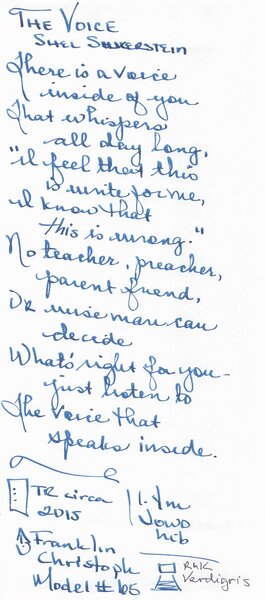 The Voice
Shel Silverstein
There is a voice
inside of you
That whispers
all day long,
"I feel that this
is write for me,
I know that
this is wrong."
No teacher, preacher,
parent friend,
Or wise man can
decide
What's right for you -
just listen to
The voice that
speaks inside.
TR circa
2015
1.1m
nib
Franklin
Christoph
Model #
R&K
Verdigris